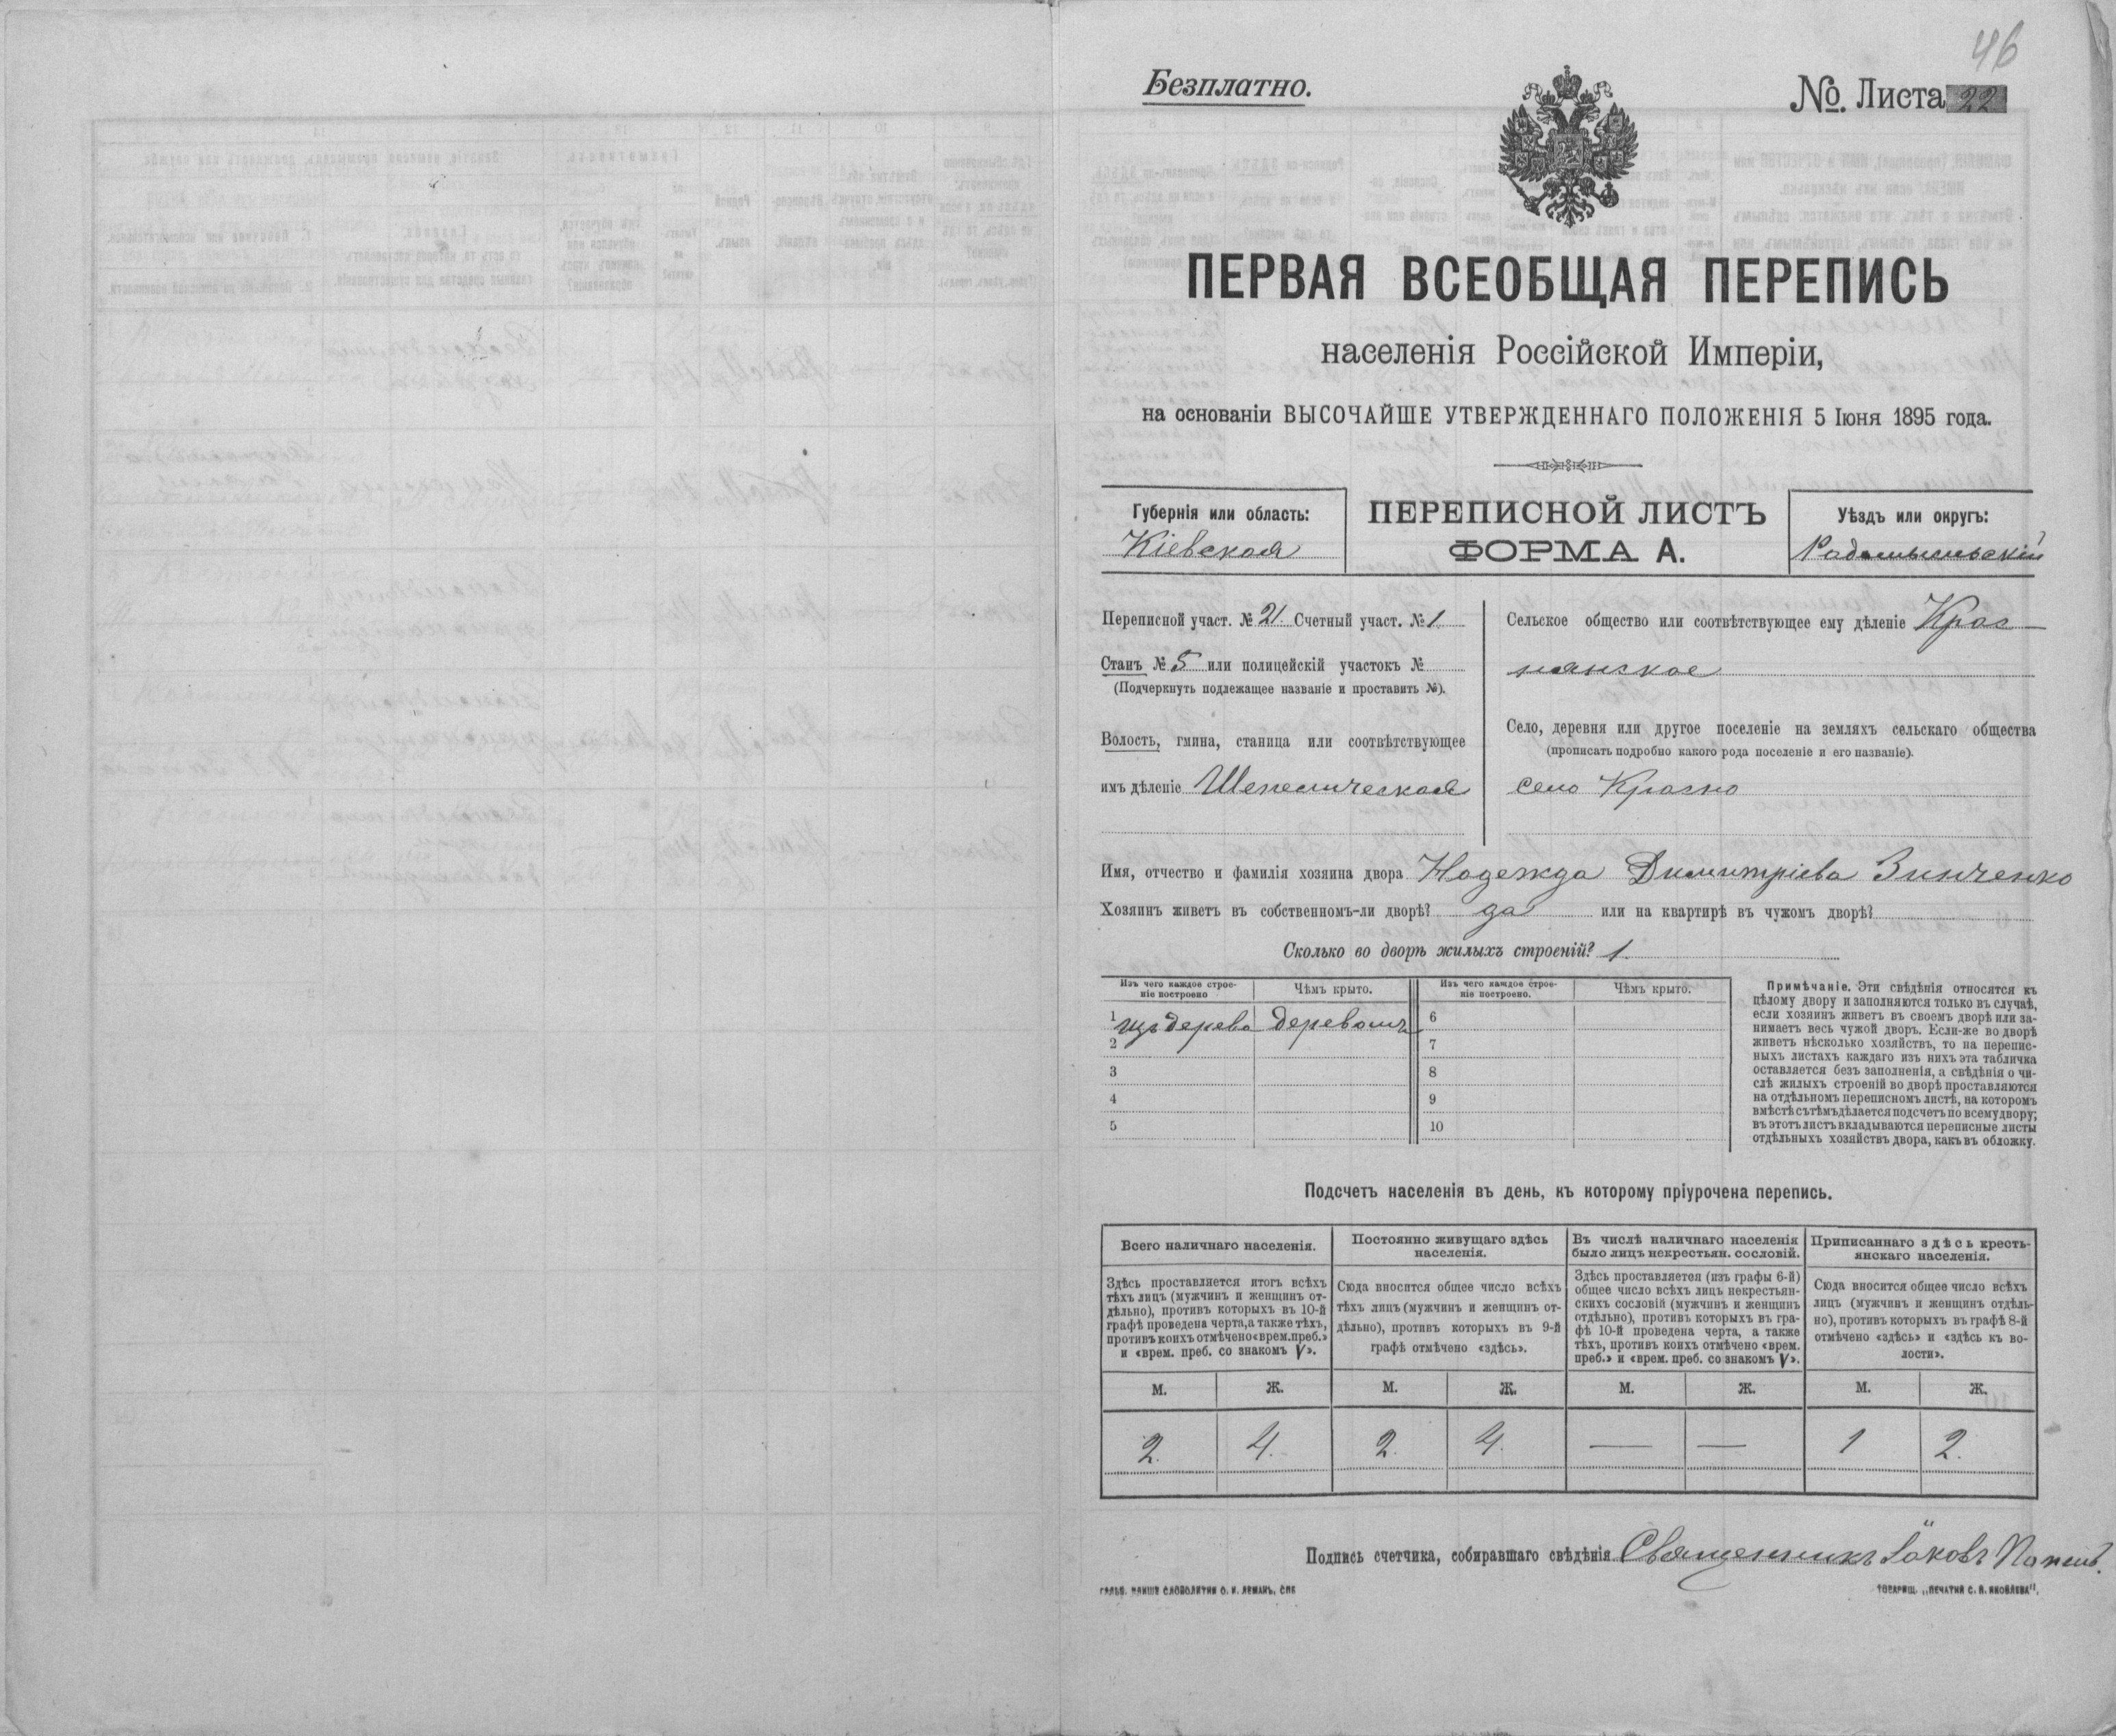 46
Безплатно.
№ Листа 22
ПЕРВАЯ ВСЕОБЩАЯ ПЕРЕПИСЬ
населенія Россійской Имперіи,
на основаніи ВЫСОЧАЙШЕ УТВЕРЖДЕННАГО ПОЛОЖЕНІЯ 5 Іюня 1895 года.
Губернія или область:
Кіевская
ПЕРЕПИСНОЙ ЛИСТЪ
ФОРМА А.
Уѣздъ или округъ:
Радомысльскій
Переписной участ. № 21. Счетный участ. № 1.
Станъ № 5 или полицейскій участокъ №
(Подчеркнуть подлежащее названіе и проставить №).
Волость, гмина, станица или соотвѣтствующее
имъ дѣленіе Шепеличская
Сельское общество или соотвѣтствующее ему дѣленіе Крас-
нянское
Село, деревня или другое поселеніе на земляхъ сельскаго общества
(прописать подробно какого рода поселеніе и его названіе).
село Красно
Имя, отчество и фамилія хозяина двора Надежда Димитріева Зинченко
Хозяинъ живетъ въ собственномъ-ли дворѣ? да или на квартирѣ въ чужомъ дворѣ?
Сколько во дворѣ жилыхъ строеній? 1.
Изъ чего каждое строе-
ніе построено
Чѣмъ крыто.
Изъ чего каждое строе-
ніе построено.
Чѣмъ крыто.
1 изъ дерева деревомъ 6
2 7
3 8
4 9
5 10
Примѣчаніе. Эти свѣдѣнія относятся къ
цѣлому двору и заполняются только въ случаѣ,
если хозяинъ живетъ въ своемъ дворѣ или за-
нимаетъ весь чужой дворъ. Если-же во дворѣ
живетъ нѣсколько хозяйствъ, то на перепис-
ныхъ листахъ каждаго изъ нихъ эта табличка
оставляется безъ заполненія, а свѣдѣнія о чи-
слѣ жилыхъ строеній во дворѣ проставляются
на отдѣльномъ переписномъ листѣ, на которомъ
вмѣстѣ съ тѣмъ дѣлается подсчетъ по всему двору;
въ этотъ листъ вкладываются переписные листы
отдѣльныхъ хозяйствъ двора, какъ въ обложку.
Подсчетъ населенія въ день, къ которому пріурочена перепись.
Всего наличнаго населенія.
Постоянно живущаго здѣсь
населенія.
Въ числѣ наличнаго населенія
было лицъ некрестьян. сословій.
Приписаннаго здѣсь кресть-
янскаго населенія.
Здѣсь проставляется итогъ всѣхъ
тѣхъ лицъ (мужчинъ и женщинъ от-
дѣльно), противъ которыхъ въ 10-й
графѣ проведена черта, а также тѣхъ,
противъ коихъ отмѣчено «врем. преб.»
и «врем. преб. со знакомъ V».
Сюда вносится общее число всѣхъ
тѣхъ лицъ (мужчинъ и женщинъ от-
дѣльно), противъ которыхъ въ 9-й
графѣ отмѣчено «здѣсь».
Здѣсь проставляется (изъ графы 6-й)
общее число всѣхъ лицъ некрестьян-
скихъ сословій (мужчинъ и женщинъ
отдѣльно), противъ которыхъ въ гра-
фѣ 10-й проведена черта, а также
тѣхъ, противъ коихъ отмѣчено «врем.
преб.» и «врем. преб. со знакомъ V».
Сюда вносится общее число всѣхъ
лицъ (мужчинъ и женщинъ отдѣль-
но), противъ которыхъ въ графѣ 8-й
отмѣчено «здѣсь» и «здѣсь къ во-
лости».
М. Ж. М. Ж. М. Ж. М. Ж.
2. 4. 2. 4. — — 1 2.
Подпись счетчика, собиравшаго свѣдѣнія Священникъ Іаковъ
ГАЛЬВ. КЛИШЕ СЛОВОЛИТНИ О. И. ЛЕМАНЪ, СПБ
ТОВАРИЩ. „ПЕЧАТНЯ С. П. ЯКОВЛЕВА".